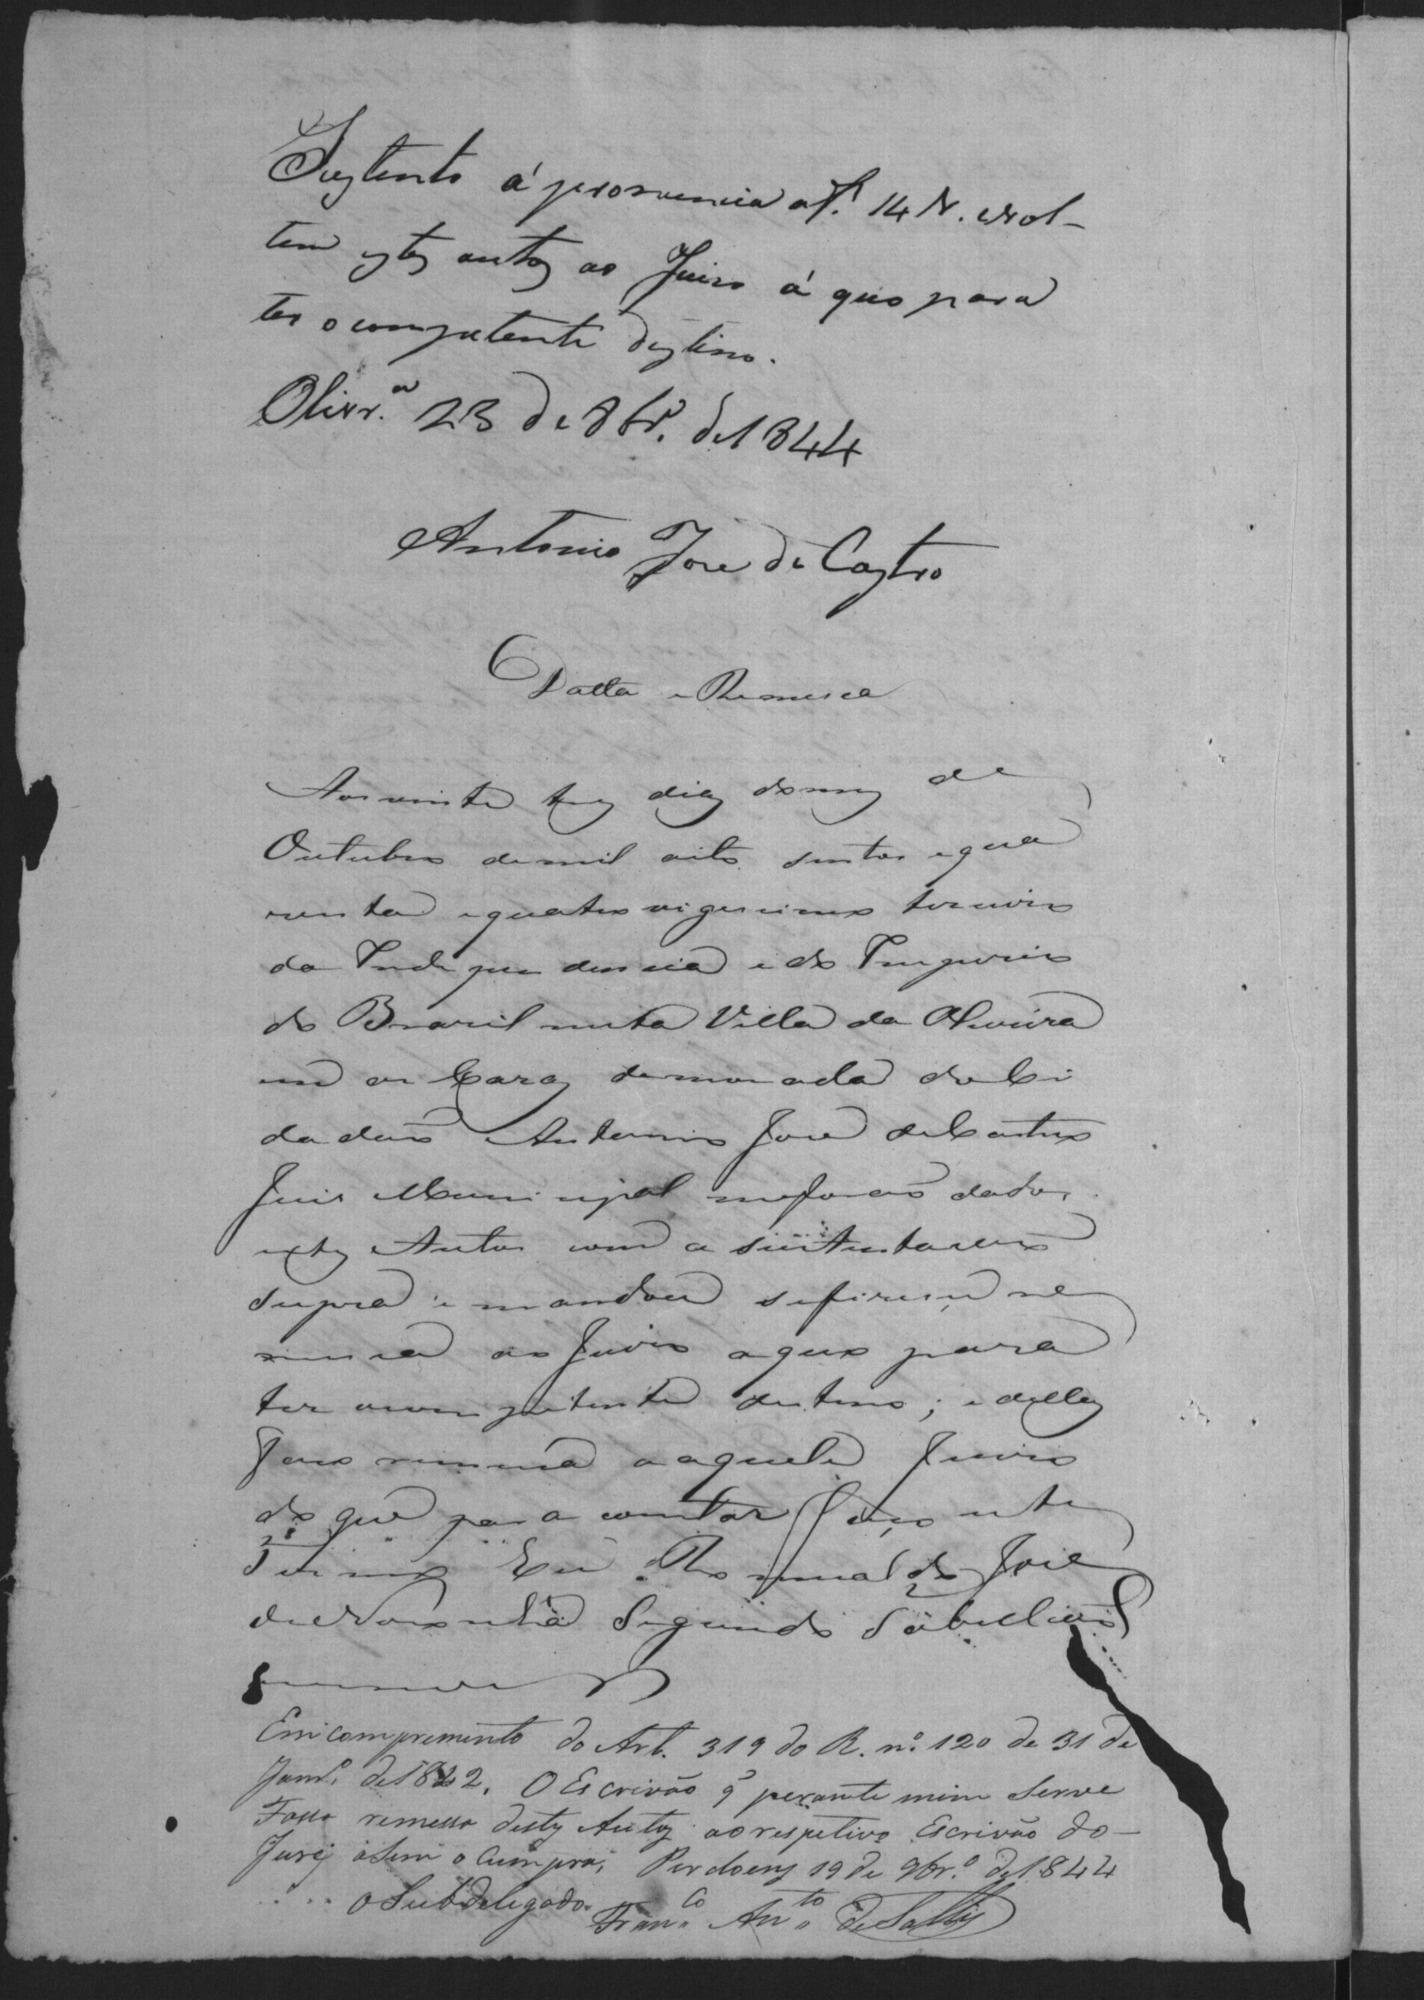 Sustento á pronuncia a f. 14 V. e vol-
tem estes autos ao Juizo á quo para
ter o competente destino.
Olivr.ª 23 de 8br.º de 1844
Antonio Jose de Castro
Datta e Remessa
Aos vinte tres dias do mes de
Outubro de mil oito sentos e qua
renta e quatro vigecimo terceiro
da Independencia e do Imperio
do Brazil nesta Villa da Oliveira
em as Cazas de morada do Ci
dadão Antonio José de Castro
Juis Municipal me forão dados
estes Autos com a sustentação
supra e mandou se fizesse re
messa ao Juizo a quo para
ter o competente destino; e delles
faço remessa a aquele Juizo
do que para constar faço este
Termo Eu Romualdo José
de Noronha Segundo Tabelião

Em comprimento do Art. 319 do R. nº 120 de 31 de
Janr.º de 1842. O Escrivão q̃ perante mim serve
Fassa remessa destes Autos ao respetivo Escrivão do
Jury asim o Cumpra; Perdoens 19 de 9br.º de 1844
O Subdelegado. Fran.co An.to de Salles